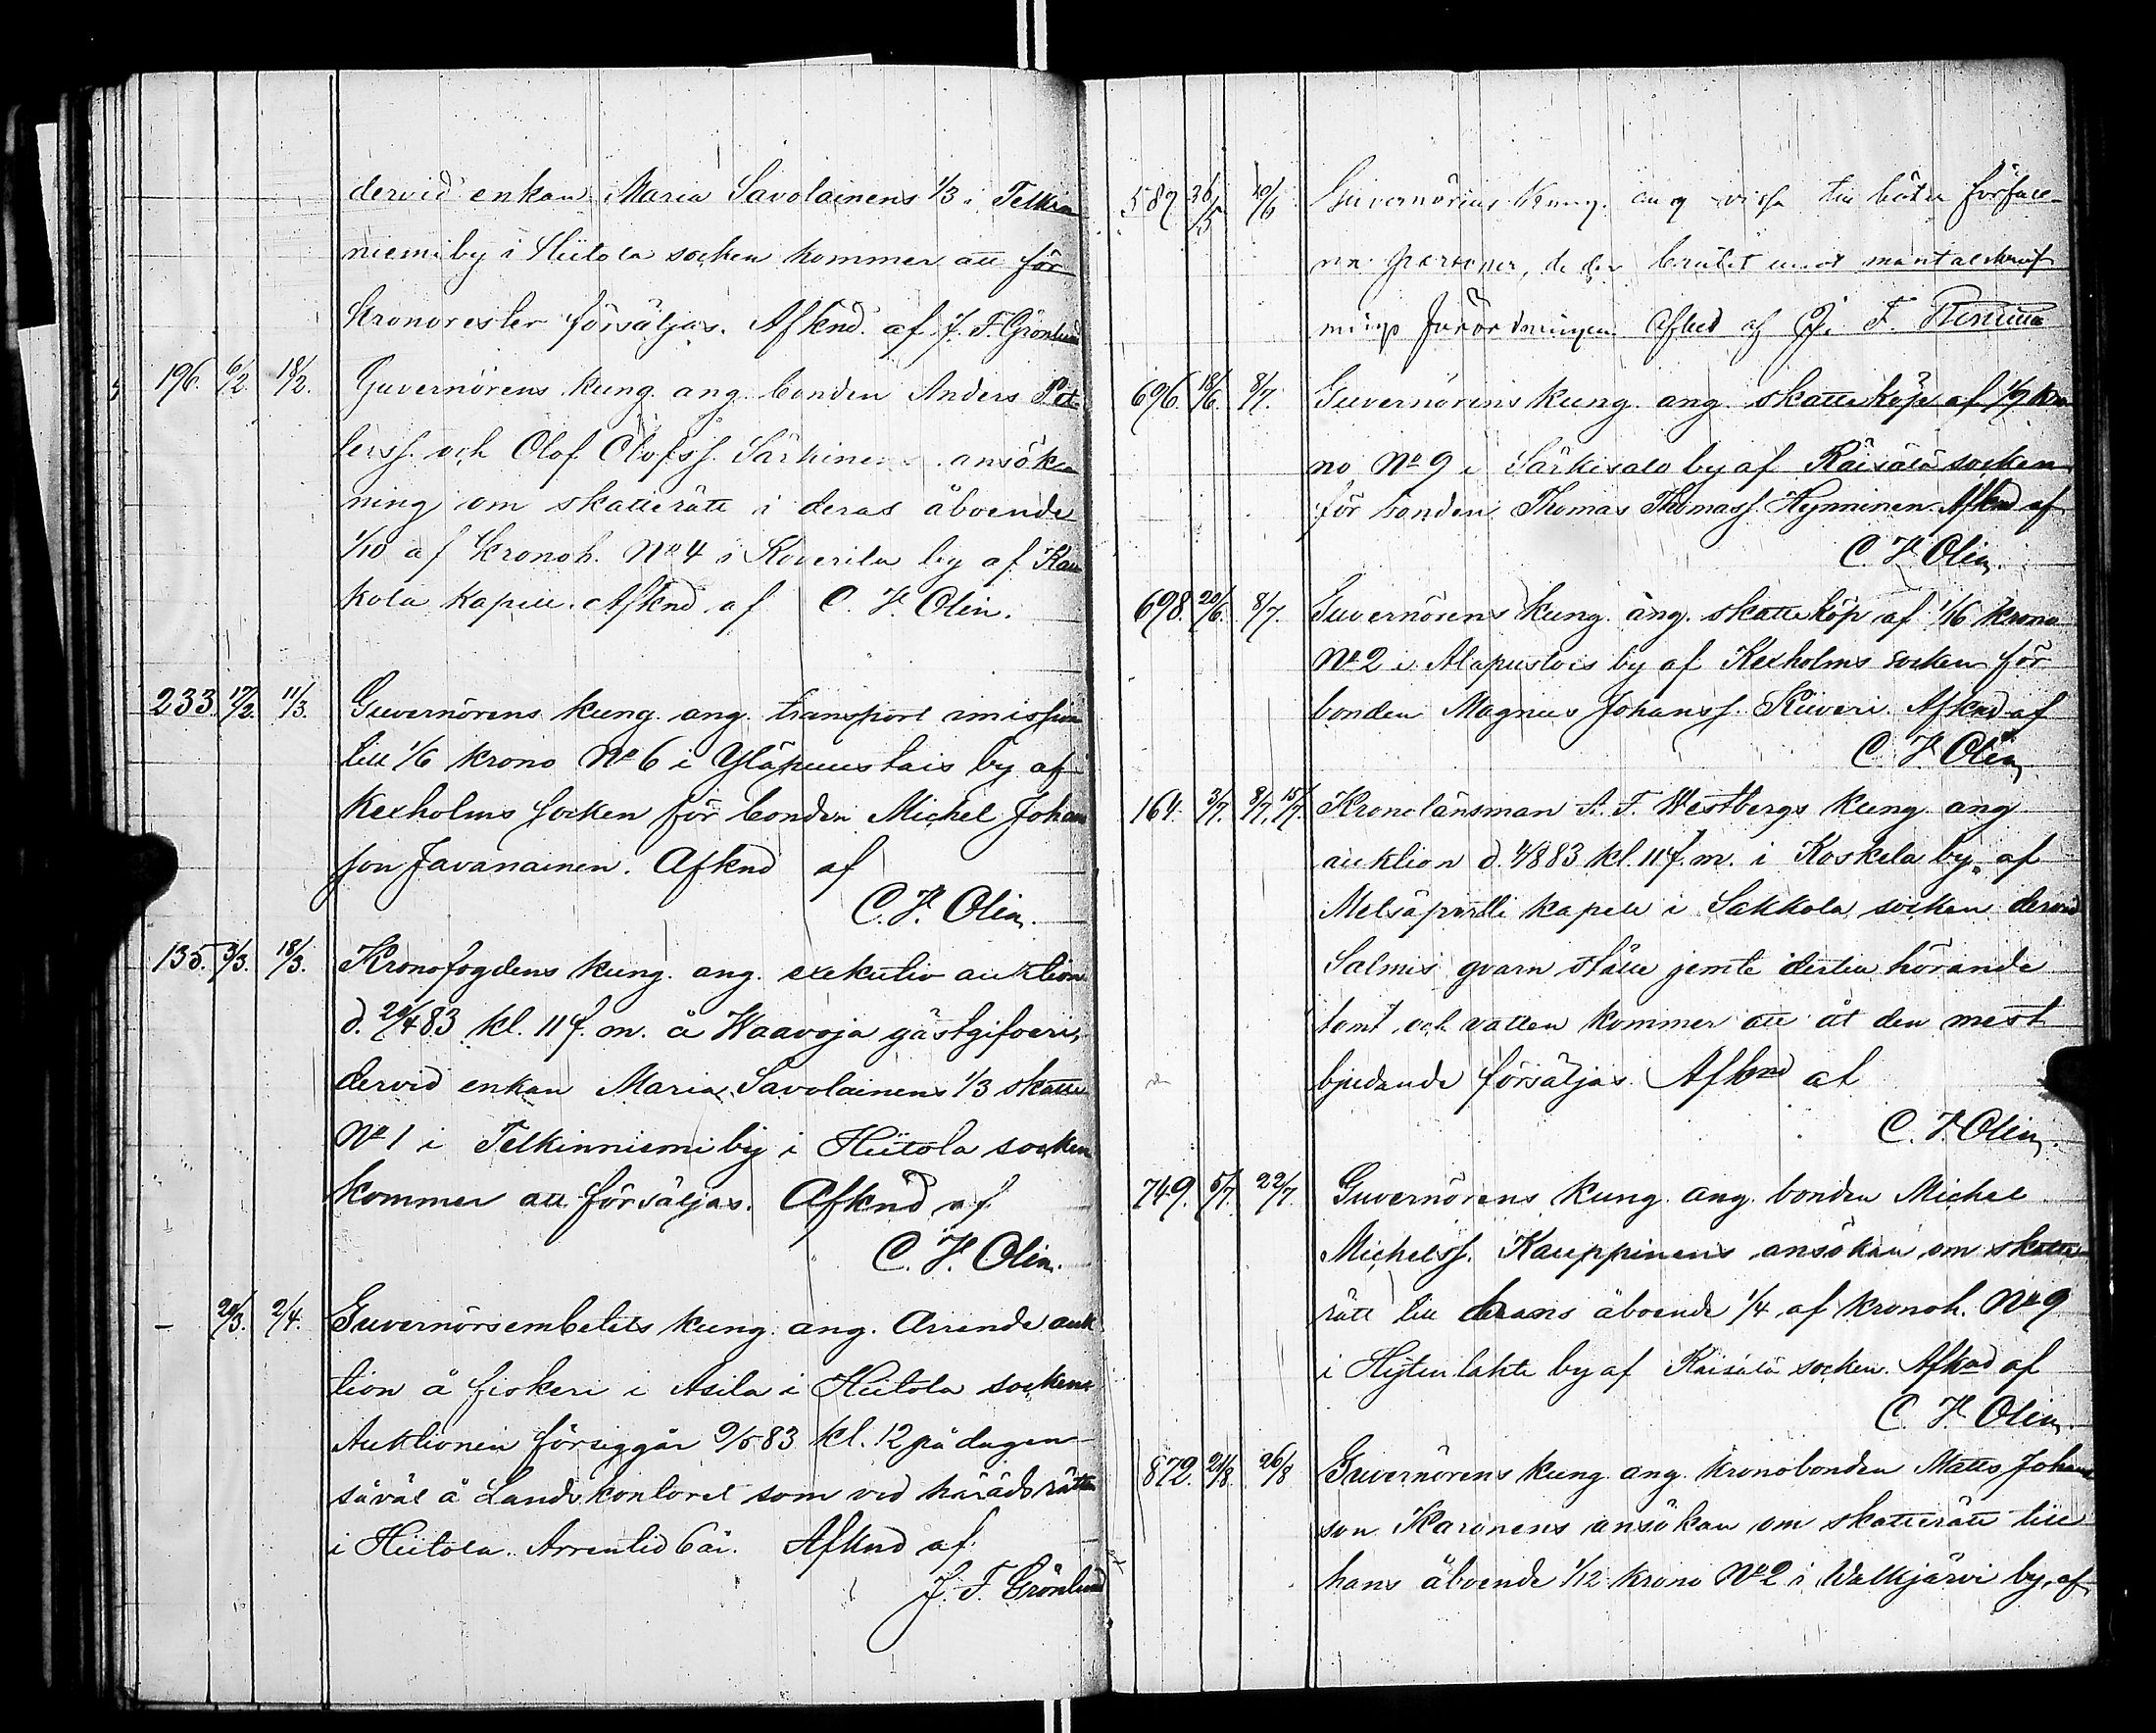 dervid enkan Maria Savolainens 1/3 i Telkin
niemi by i Hiitola socken kommer att för
kronorester försäljas. Afknd af J. F. Grönlund
196. 6/2. 18/2. Guvernörens kung. ang. bonden Anders Pet
terss. och Olof Olofss. Särkinens ansök
ning om skatterätt i deras åboende
1/10 af Kronoh. No 4 i Koverila by af Kau
kola kapell. Afknd af C. F. Olin.
233. 17/2. 11/3. Guvernörens kung. ang. transport imission
till 1/6 krono No 6 i Yläpuustais by af
Kexholms socken för bonden Michel Johan
sson Javanainen. Afknd af
C. F. Olin.
135. 3/3. 18/3. Kronofogdens kung. ang. exekutiv auktion
d. 20/4 83 kl. 11 f. m. å Waavoja gästgifveri,
dervid enkan Maria Savolainens 1/3 skatte
No 1 i Telkinniemi by i Hiitola socken
kommer att försäljas. Afknd af
C. F. Olin.
– 20/3. 2/4. Guvernörsembetets kung. ang. Arrende auk
tion å fiskeri i Asila i Hiitola socken
Auktionen försiggår 9/5 83 kl. 12 på dagen
såväl å Landskontoret som vid häradsrätten
i Hiitola. Arrentid 6 år. Afknd af
J. F. Grönlund
587 26/5 10/6 Guvernörens kung. ang vissa till böter förfall
na personer, de der brutit mot mantalskrif
nings förordningen Afknd af J. F.
696. 18/6. 8/7. Guvernörens kung. ang. skatteköp af 1/9 kro
no No 9 i Särkisalo by af Räisälä socken
för bonden Thomas Thomass. Hynninen. Afknd af
C. F. Olin.
698. 20/6. 8/7. Guvernörens kung. ang. skatteköp af 1/16 krono
No 2 i Alapustois by af Kexholms socken för
bonden Magnus Johanss. Kiiveri. Afknd af
C. F. Olin
164. 3/7. 8/7. 15/7. Kronolänsman A. F. Westbergs kung. ang
auktion d. 4/8 83 kl. 11 f. m. i Koskela by af
Metsäpirtti kapell i Sakkola socken dervid
Salmis qvarn ställe jemte dertill hörande
tomt och vatten kommer att åt den mest
bjudande försäljas. Afknd af
C. F. Olin.
749. 5/7. 22/7. Guvernörens kung. ang. bonden Michel
Michelss. Kauppinens ansökan om skatte
rätt till hans åboende 1/4 af kronoh. No 9
i Hytinlahti by af Räisälä socken. Afknd af
C. F. Olin.
872. 21/8. 26/8 Guvernörens kung. ang. kronobonden Matts Johans
son Karonens ansökan om skatterätt till
hans åboende 1/12 krono No 2 i Walkjärvi by af